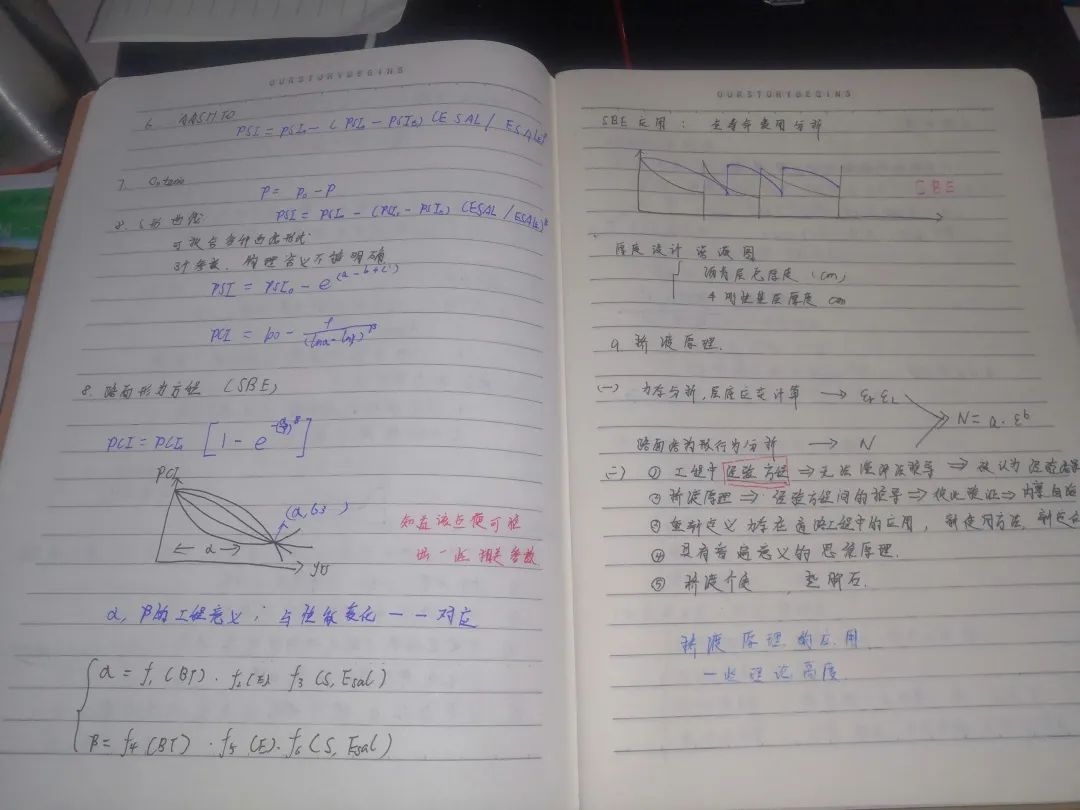 OURSTORYBEGINS
6. AASHTO
PSI = PSI₀ - (PSI₀ - PSIt) (ESAL / ESALt)^β
7.
P = P₀ - P
8. S形曲线
PSI = PSI₀ - (PSI₀ - PSIt) (ESAL/ESALt)^β
可拟合多种曲线形式
3个参数, 物理含义不够明确
PSI = PSI₀ - e^(a-b+c^t)
PCI = 100 -
8. 路面行为方程 (SBE)
PCI = PCI₀ [1 - e^-(α/y)^β]
PCI
(α, 63)
知道该点便可推
出一些相关参数
← α →
y(t)
α, β的工程意义; 与性能变化一一对应
α = f₁(BT). f₂(E). f₃(S, Esal)
β = f₄(BT) · f₅(E). f₆(S, Esal)
OURSTORYBEGINS
SBE 应用: 全寿命费用分析
SBE
厚度设计 诺谟图
沥青层总厚度 (cm)
半刚性基层厚度 cm
9 桥渡原理.
(一) 力学分析, 层底应变计算 → εr εL
N = a·ε^b
路面 行为分析 → N
(二) ① 工程中 经验方程 ⇒ 无法 推导 ⇒ 被认为经验
② 桥渡原理 ⇒ 经验方程间的推导 ⇒ 彼此验证 ⇒ 内容自
③ 重新定义力学在道路工程中的应用, 新使用方法, 新
④ 具有普遍意义的思维原理.
⑤ 桥渡介质, 垫脚石.
桥渡原理的应用
一些理论高度.